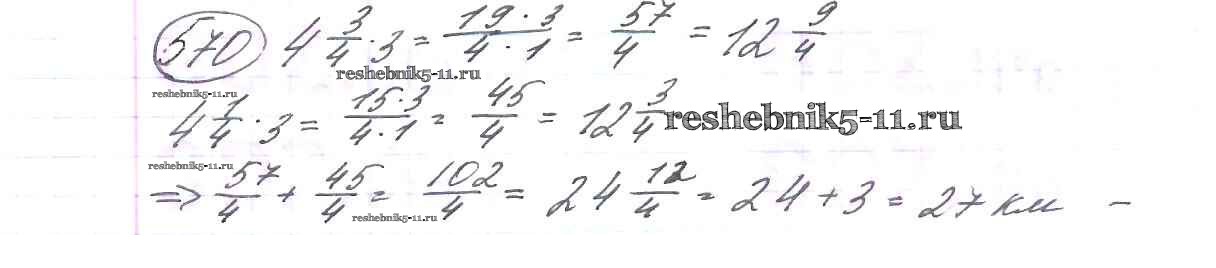 570 4 3/4 · 3 = 19 · 3 / 4 · 1 = 57/4 = 12 9/4
reshebnik5-11.ru
reshebnik5-11.ru
4 1/4 · 3 = 15 · 3 / 4 · 1 = 45/4 = 12 3/4 reshebnik5-11.ru
reshebnik5-11.ru
=> 57/4 + 45/4 = 102/4 = 24 12/4 = 24 + 3 = 27 км –
reshebnik5-11.ru